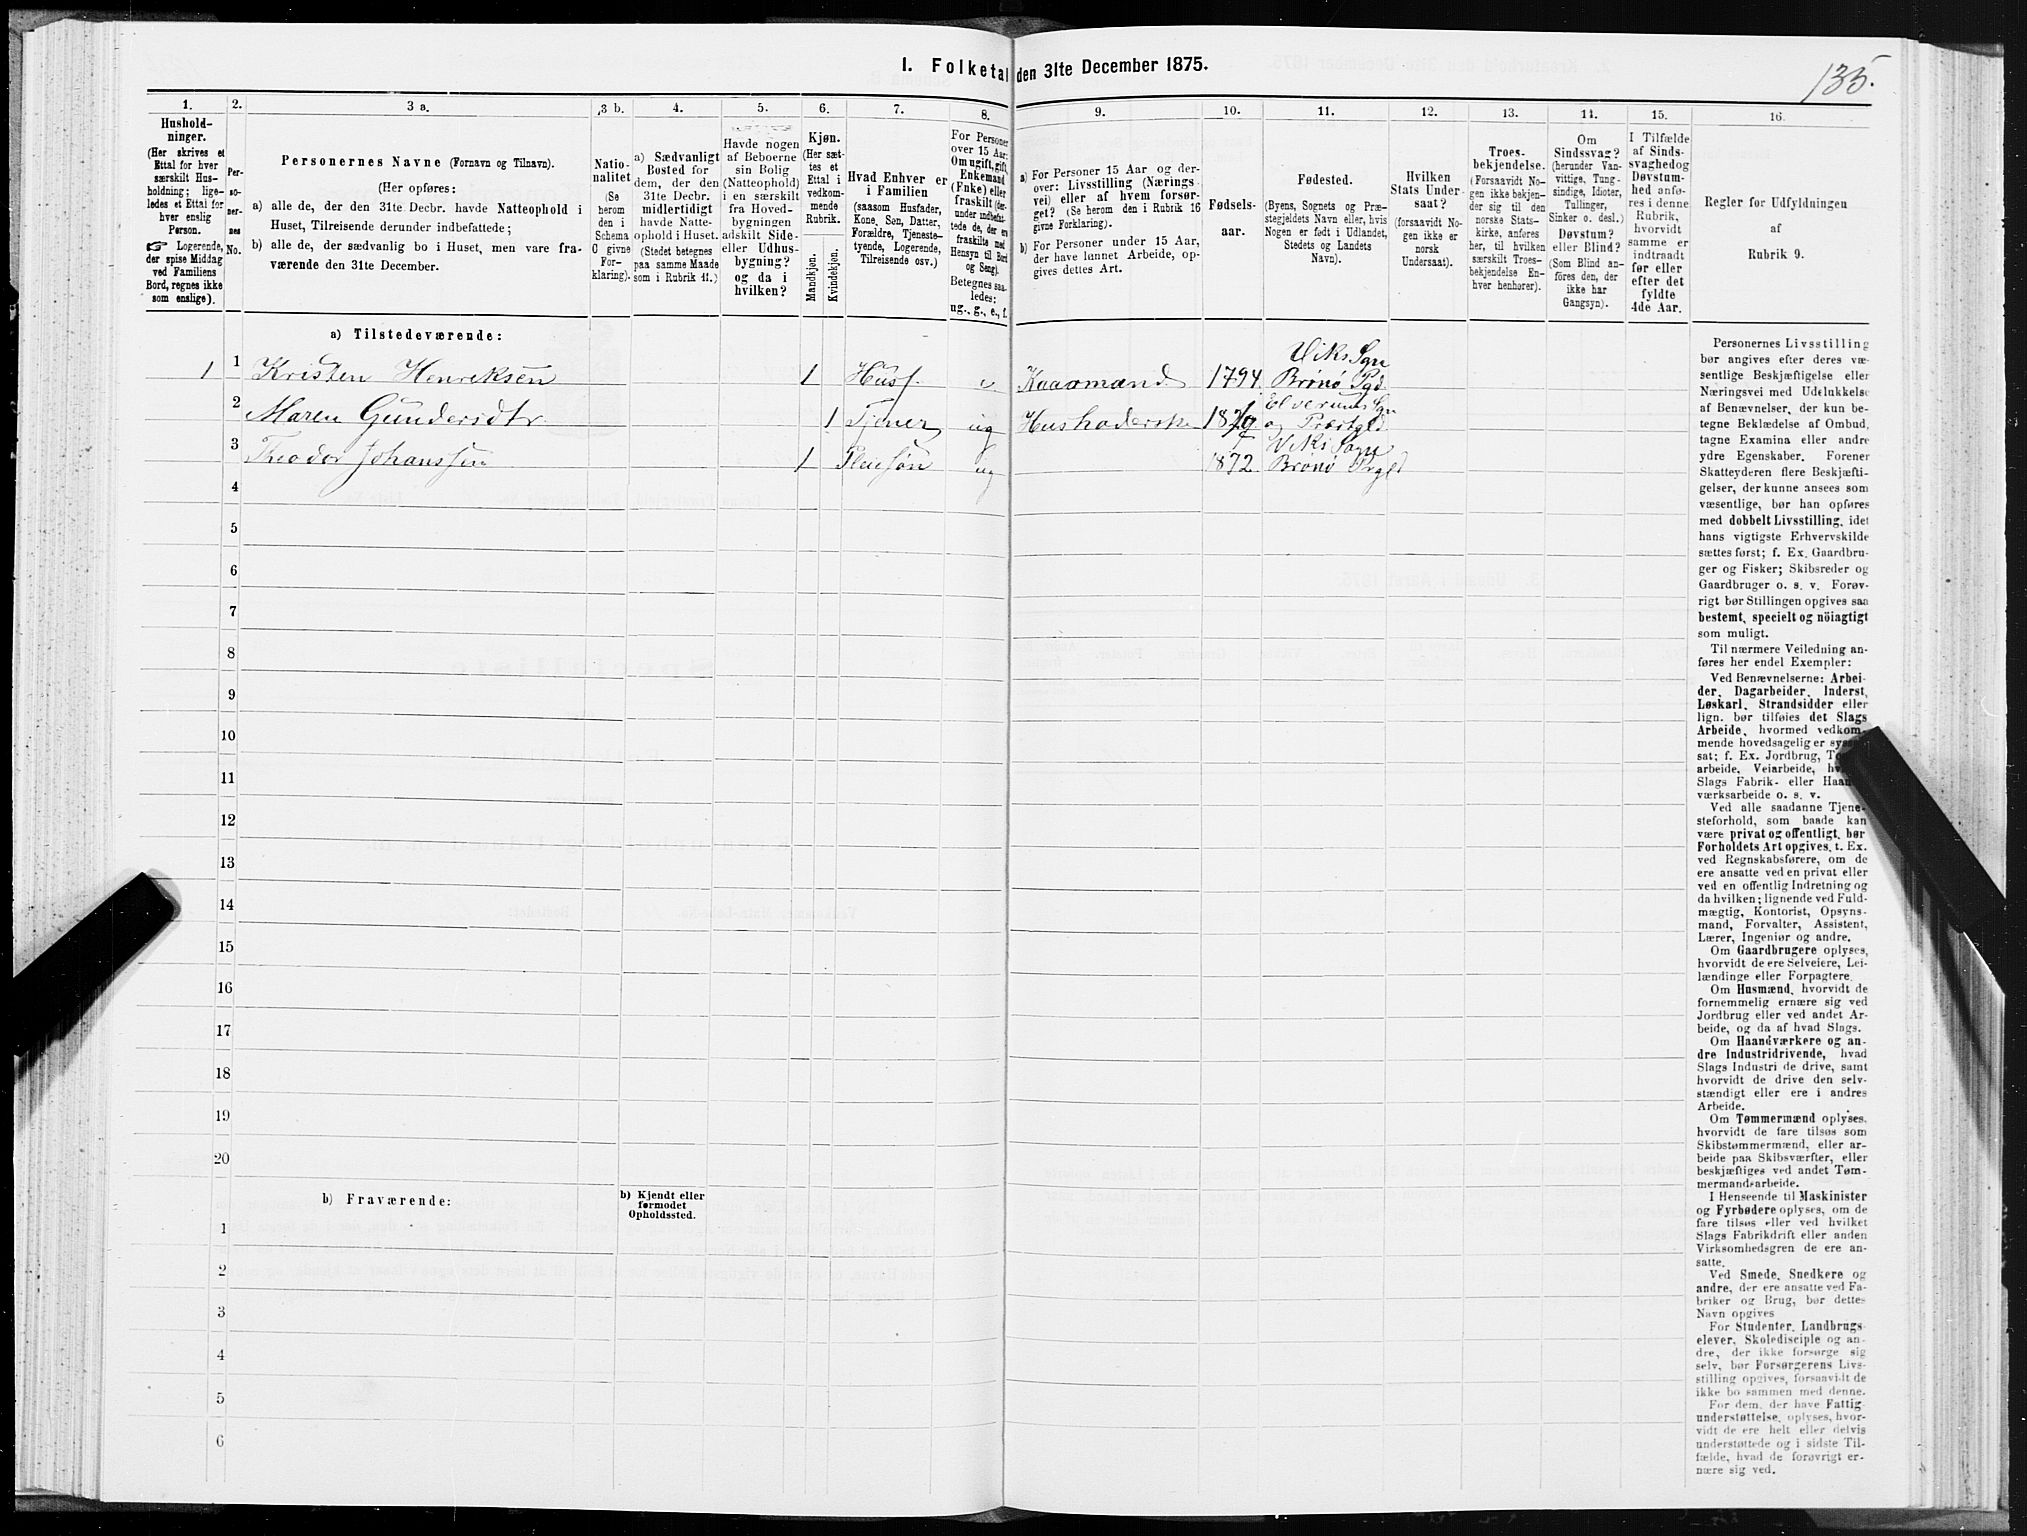 I. Folketal den 31te December 1875.
135.
1.
Hushold-
ninger.
(Her skrives et
Ettal for hver
særskilt Hus-
holdning; lige-
ledes et Ettal for
hver enslig
Person.
☞ Logerende,
der spise Middag
ved Familiens
Bord, regnes ikke
som enslige).
2.
Per-
so-
ner-
nes
No.
3 a.
Personernes Navne (Fornavn og Tilnavn).
(Her opføres:
a) alle de, der den 31te Decbr. havde Natteophold i
Huset, Tilreisende derunder indbefattede;
b) alle de, der sædvanlig bo i Huset, men vare fra-
værende den 31te December.
3 b.
Natio-
nalitet
(Se
herom
den i
Schema
O givne
For-
klaring).
4.
a) Sædvanligt
Bosted for
dem, der den
31te Decbr.
midlertidigt
havde Natte-
ophold i Huset.
(Stedet betegnes
paa samme Maade
som i Rubrik 11.)
5.
Havde nogen
af Beboerne
sin Bolig
(Natteophold)
i en særskilt
fra Hoved-
bygningen
adskilt Side-
eller Udhus-
bygning?
og da i
hvilken?
6.
Kjøn.
(Her sæt-
tes et
Ettal i
vedkom-
mende
Rubrik.
Mandkjøn.
Kvindekjøn.
7.
Hvad Enhver er
i Familien
(saasom Husfader,
Kone, Søn, Datter,
Forældre, Tjeneste-
tyende, Logerende,
Tilreisende osv.)
8.
For Personer
over 15 Aar:
Om ugift, gift,
Enkemand
(Enke) eller
fraskilt (der-
under indbefat-
tede de, der ere
fraskilte med
Hensyn til Bord
og Seng).
Betegnes saa-
ledes:
ug., g., e., f.
9.
a) For Personer 15 Aar og der-
over: Livsstilling (Nærings-
vei) eller af hvem forsør-
get? (Se herom den i Rubrik 16
givne Forklaring).
b) For Personer under 15 Aar,
der have lønnet Arbeide, op-
gives dettes Art.
10.
Fødsels-
aar.
11.
Fødested.
(Byens, Sognets og Præ-
stegjeldets Navn eller, hvis
Nogen er født i Udlandet,
Stedets og Landets
Navn).
12.
Hvilken
Stats Under-
saat?
(forsaavidt No-
gen ikke er
norsk
Undersaat).
13.
Troes-
bekjendelse.
(Forsaavidt No-
gen ikke bekjen-
der sig til den
norske Stats-
kirke, anføres
her, til hvilken
særskilt Troes-
bekjendelse En-
hver henhører).
14.
Om
Sindssvag?
(herunder Van-
vittige, Tung-
sindige, Idioter,
Tullinger,
Sinker o. desl.)
Døvstum?
eller Blind?
(Som Blind an-
føres den, der
ikke har
Gangsyn).
15.
I Tilfælde
af Sinds-
svaghed og
Døvstum-
hed anfø-
res i denne
Rubrik,
hvorvidt
samme er
indtraadt
før eller
efter det
fyldte
4de Aar.
16.
Regler for Udfyldningen
af
Rubrik 9.
a) Tilstedeværende:
1 1 Kristen Henriksen 1 Husf. Kaarmand 1794. Viks Sgn Brønø Pgd
2 Maren Gundersdtr. 1 Tjener ug Elverums Sgn og Præstgld
3 Theodor Johanssen 1 Pleiesøn ug 1872. Viks Sogn Brønø Prgld
4
5
6
7
8
9
10
11
12
13
14
15
16
17
18
19
20
b) Fraværende:
b) Kjendt eller
formodet
Opholdssted.
1
2
3
4
5
6
Personernes Livsstilling
bør angives efter deres væ-
sentlige Beskjæftigelse eller
Næringsvei med Udelukkelse
af Benævnelser, der kun be-
tegne Beklædelse af Ombud,
tagne Examina eller andre
ydre Egenskaber. Forener
Skatteyderen flere Beskjæfti-
gelser, der kunne ansees som
væsentlige, bør han opføres
med dobbelt Livsstilling, idet
hans vigtigste Erhvervskilde
sættes først; f. Ex. Gaardbru-
ger og Fisker; Skibsreder og
Gaardbruger o. s. v. Forøv-
rigt bør Stillingen opgives saa
bestemt, specielt og nöiagtigt
som muligt.
Til nærmere Veiledning an-
føres her endel Exempler:
Ved Benævnelserne: Arbei-
der, Dagarbeider, Inderst,
Løskarl, Strandsidder eller
lign. bør tilføies det Slags
Arbeide, hvormed vedkom-
mende hovedsagelig er
sat; f. Ex. Jordbrug,
arbeide, Veiarbeide,
Slags Fabrik- eller
værksarbeide o. s. v.
Ved alle saadanne Tjene-
steforhold, som baade kan
være privat og offentligt, bør
Forholdets Art opgives, t. Ex.
ved Regnskabsførere, om de
ere ansatte ved en privat eller
ved en offentlig Indretning og
da hvilken; lignende ved Fuld-
mægtig, Kontorist, Opsyns-
mand, Forvalter, Assistent,
Lærer, Ingeniør og andre.
Om Gaardbrugere oplyses,
hvorvidt de ere Selveiere, Lei-
lændinge eller Forpagtere.
Om Husmænd, hvorvidt de
fornemmelig ernære sig ved
Jordbrug eller ved andet Ar-
beide, og da af hvad Slags.
Om Haandværkere og an-
dre Industridrivende, hvad
Slags Industri de drive, samt
hvorvidt de drive den selv-
stændigt eller ere i andres
Arbeide.
Om Tømmermænd oplyses,
hvorvidt de fare tilsøs som
Skibstømmermænd, eller ar-
beide paa Skibsværfter, eller
beskjæftiges ved andet Tøm-
mermandsarbeide.
I Henseende til Maskinister
og Fyrbødere oplyses, om de
fare tilsøs eller ved hvilket
Slags Fabrikdrift eller anden
Virksomhedsgren de ere an-
satte.
Ved Smede, Snedkere og
andre, der ere ansatte ved Fa-
briker og Brug, bør dettes
Navn opgives
For Studenter, Landbrugs-
elever, Skoledisciple og an-
dre, der ikke forsørge sig
selv, bør Forsørgerens Livs-
stilling opgives, forsaavidt de
ikke bo sammen med denne.
For dem, der have Fattig-
understøttelse, oplyses, hvor-
vidt de ere helt eller delvis
understøttede og i sidste Til-
fælde, hvad de forøvrigt er-
nære sig ved.